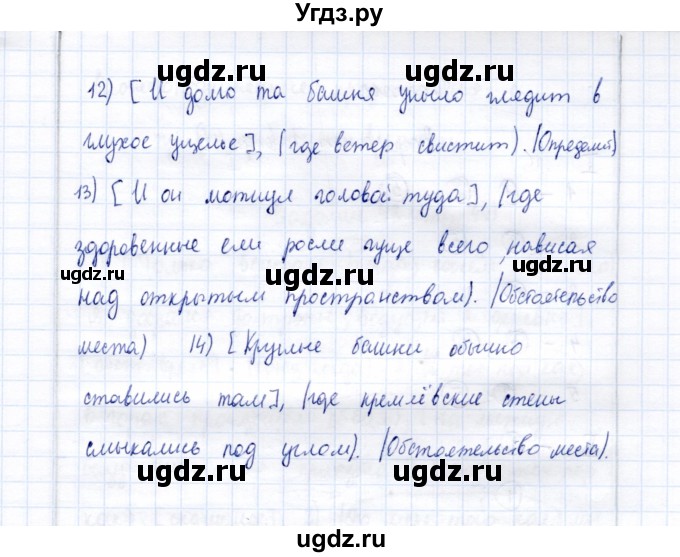 Угдз.ру
ugdz.ru ugdz.ru
12) [И долго та башня уныло глядит в
глухое ущелье], (где ветер свистит). (Определит)
ugdz.ru
13) [И он мотнул головой туда], (где
здоровенные ели росли гуще всего, нависая
ugdz.ru ugdz.ru ugdz.ru
над открытым пространством). (Обстоятельство
места) 14) [Круглые башни обычно
ставились там], (где кремлёвские стены
смыкались под углом). (Обстоятельство места).
ugdz.ru ugdz.ru
Угдз.ру